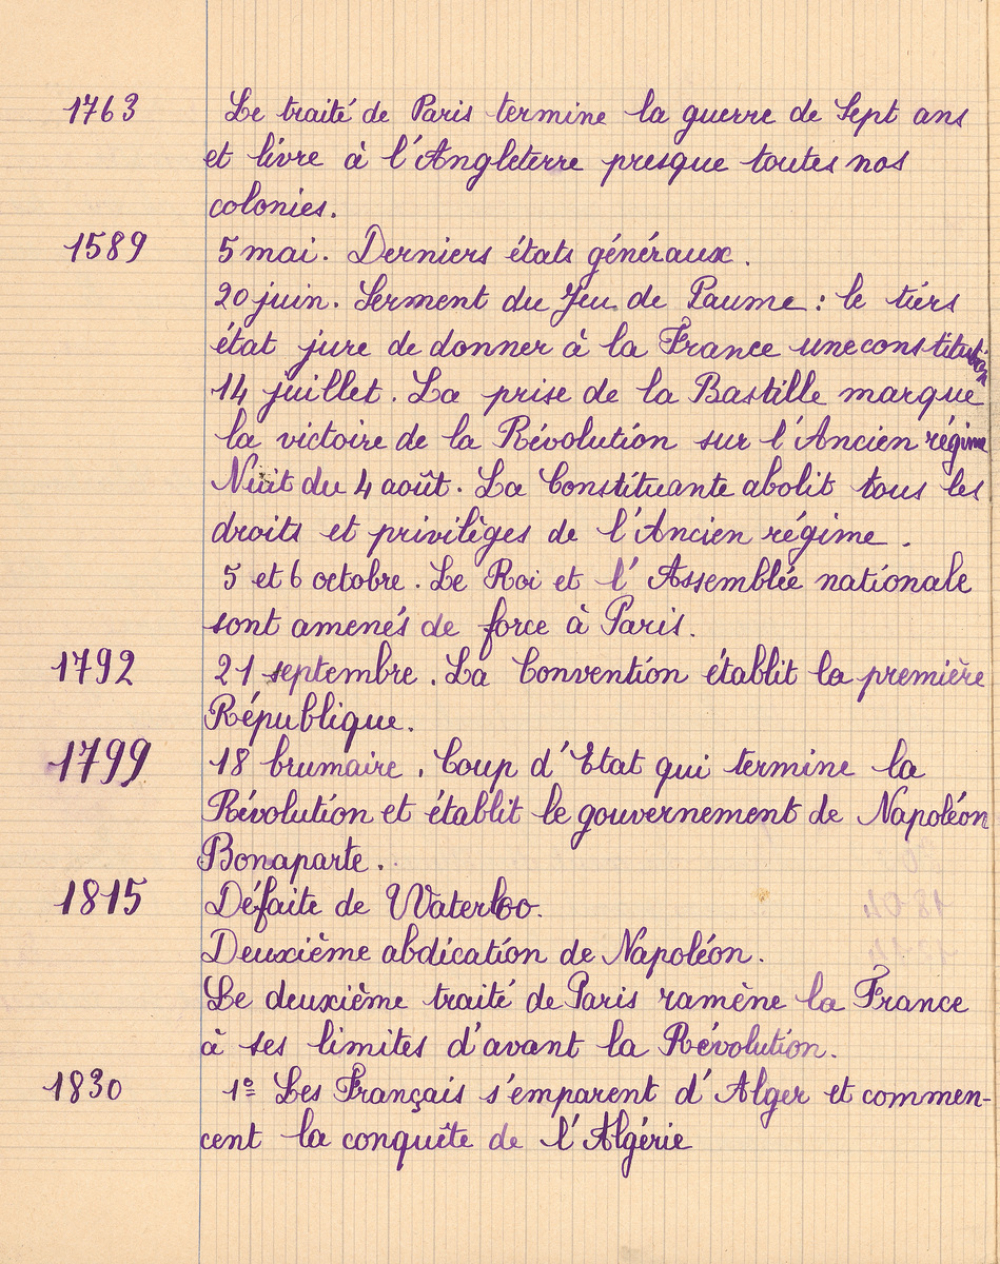 1763 Le traité de Paris termine la guerre de Sept ans
et livre à l'Angleterre presque toutes nos
colonies.
1589 5 mai. Derniers états généraux.
20 juin. Serment du Jeu de Paume : le tiers
état jure de donner à la France une constitution
14 juillet. La prise de la Bastille marque
la victoire de la Révolution sur l'Ancien régime
Nuit du 4 août. La Constituante abolit tous les
droits et privilèges de l'Ancien régime.
5 et 6 octobre. Le Roi et l'Assemblée nationale
sont amenés de force à Paris.
1792 21 septembre. La Convention établit la première
République.
1799 18 brumaire. Coup d'Etat qui termine la
Révolution et établit le gouvernement de Napoléon
Bonaparte.
1815 Défaite de Waterloo.
Deuxième abdication de Napoléon.
Le deuxième traité de Paris ramène la France
à ses limites d'avant la Révolution.
1830 1º Les Français s'emparent d'Alger et commen-
cent la conquête de l'Algérie